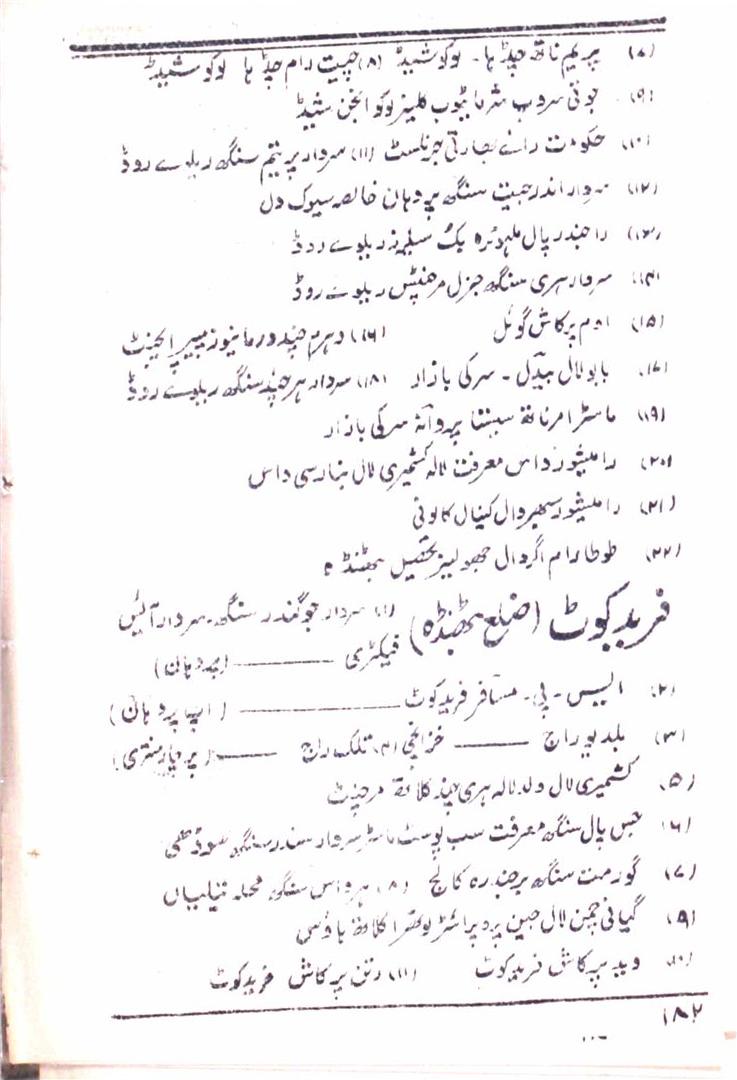 (۷) پریم ناتھ چڈہا۔ لوکوشیڈ (۸) چیت رام چڈہا لوکوشیڈ
(۹) جوتی سروپ شرما ٹیوب کلینر لوکو انجن شیڈ
(۱۰) حکومت رائے بھارتی جرنلسٹ (۱۱) سردار پریتم سنگھ ریلوے روڈ
(۱۲) سردار اندرجیت سنگھ پردہان خالصہ سیوک دل
(۱۳) راجندر پال ملہوترہ بک سیلرز ریلوے روڈ
(۱۴) سردار ہری سنگھ جنرل مرچنٹس ریلوے روڈ
(۱۵) اوم پرکاش گوئل (۱۶) دہرم چند ورما نیوز پیپر ایجنٹ
(۱۷) بابو لال بیدل۔ سرکی بازار (۱۸) سردار ہرچند سنگھ ریلوے روڈ
(۱۹) ماسٹر امرناتھ سپنتا پروانہ سرکی بازار
(۲۰) رامیشور داس معرفت لالہ کشمیری لال بنارسی داس
(۲۱) رامیشور سبھروال کینال کالونی
(۲۲) طوطا رام اگروال تحصیل بھٹنڈہ
فریدکوٹ (ضلع بھٹنڈہ) (۱) سردار جوگندر سنگھ۔ سردار آئیس
فیکٹری ——— (پردہان)
(۲) ایس۔ پی۔ مسافر فریدکوٹ ——— (اپ پردہان)
(۳) بلدیو راج ——— خزانچی (۴) تلک راج ——— (پرچار منتری)
(۵) کشمیری لال ولد لالہ ہری چند کلاتھ مرچنٹ
(۶) جس پال سنگھ معرفت سب پوسٹ ماسٹر سردار سندر سنگھ سوڈھی
(۷) گورمت سنگھ برجندرہ کالج (۸) ہرداس سنگھ محلہ تیلیاں
(۹) گیانی چمن لال جین پروپرائٹر لوتھرا کلاتھ ہاؤس
(۱۰) وید پرکاش فریدکوٹ (۱۱) رتن پرکاش فریدکوٹ
۱۸۲